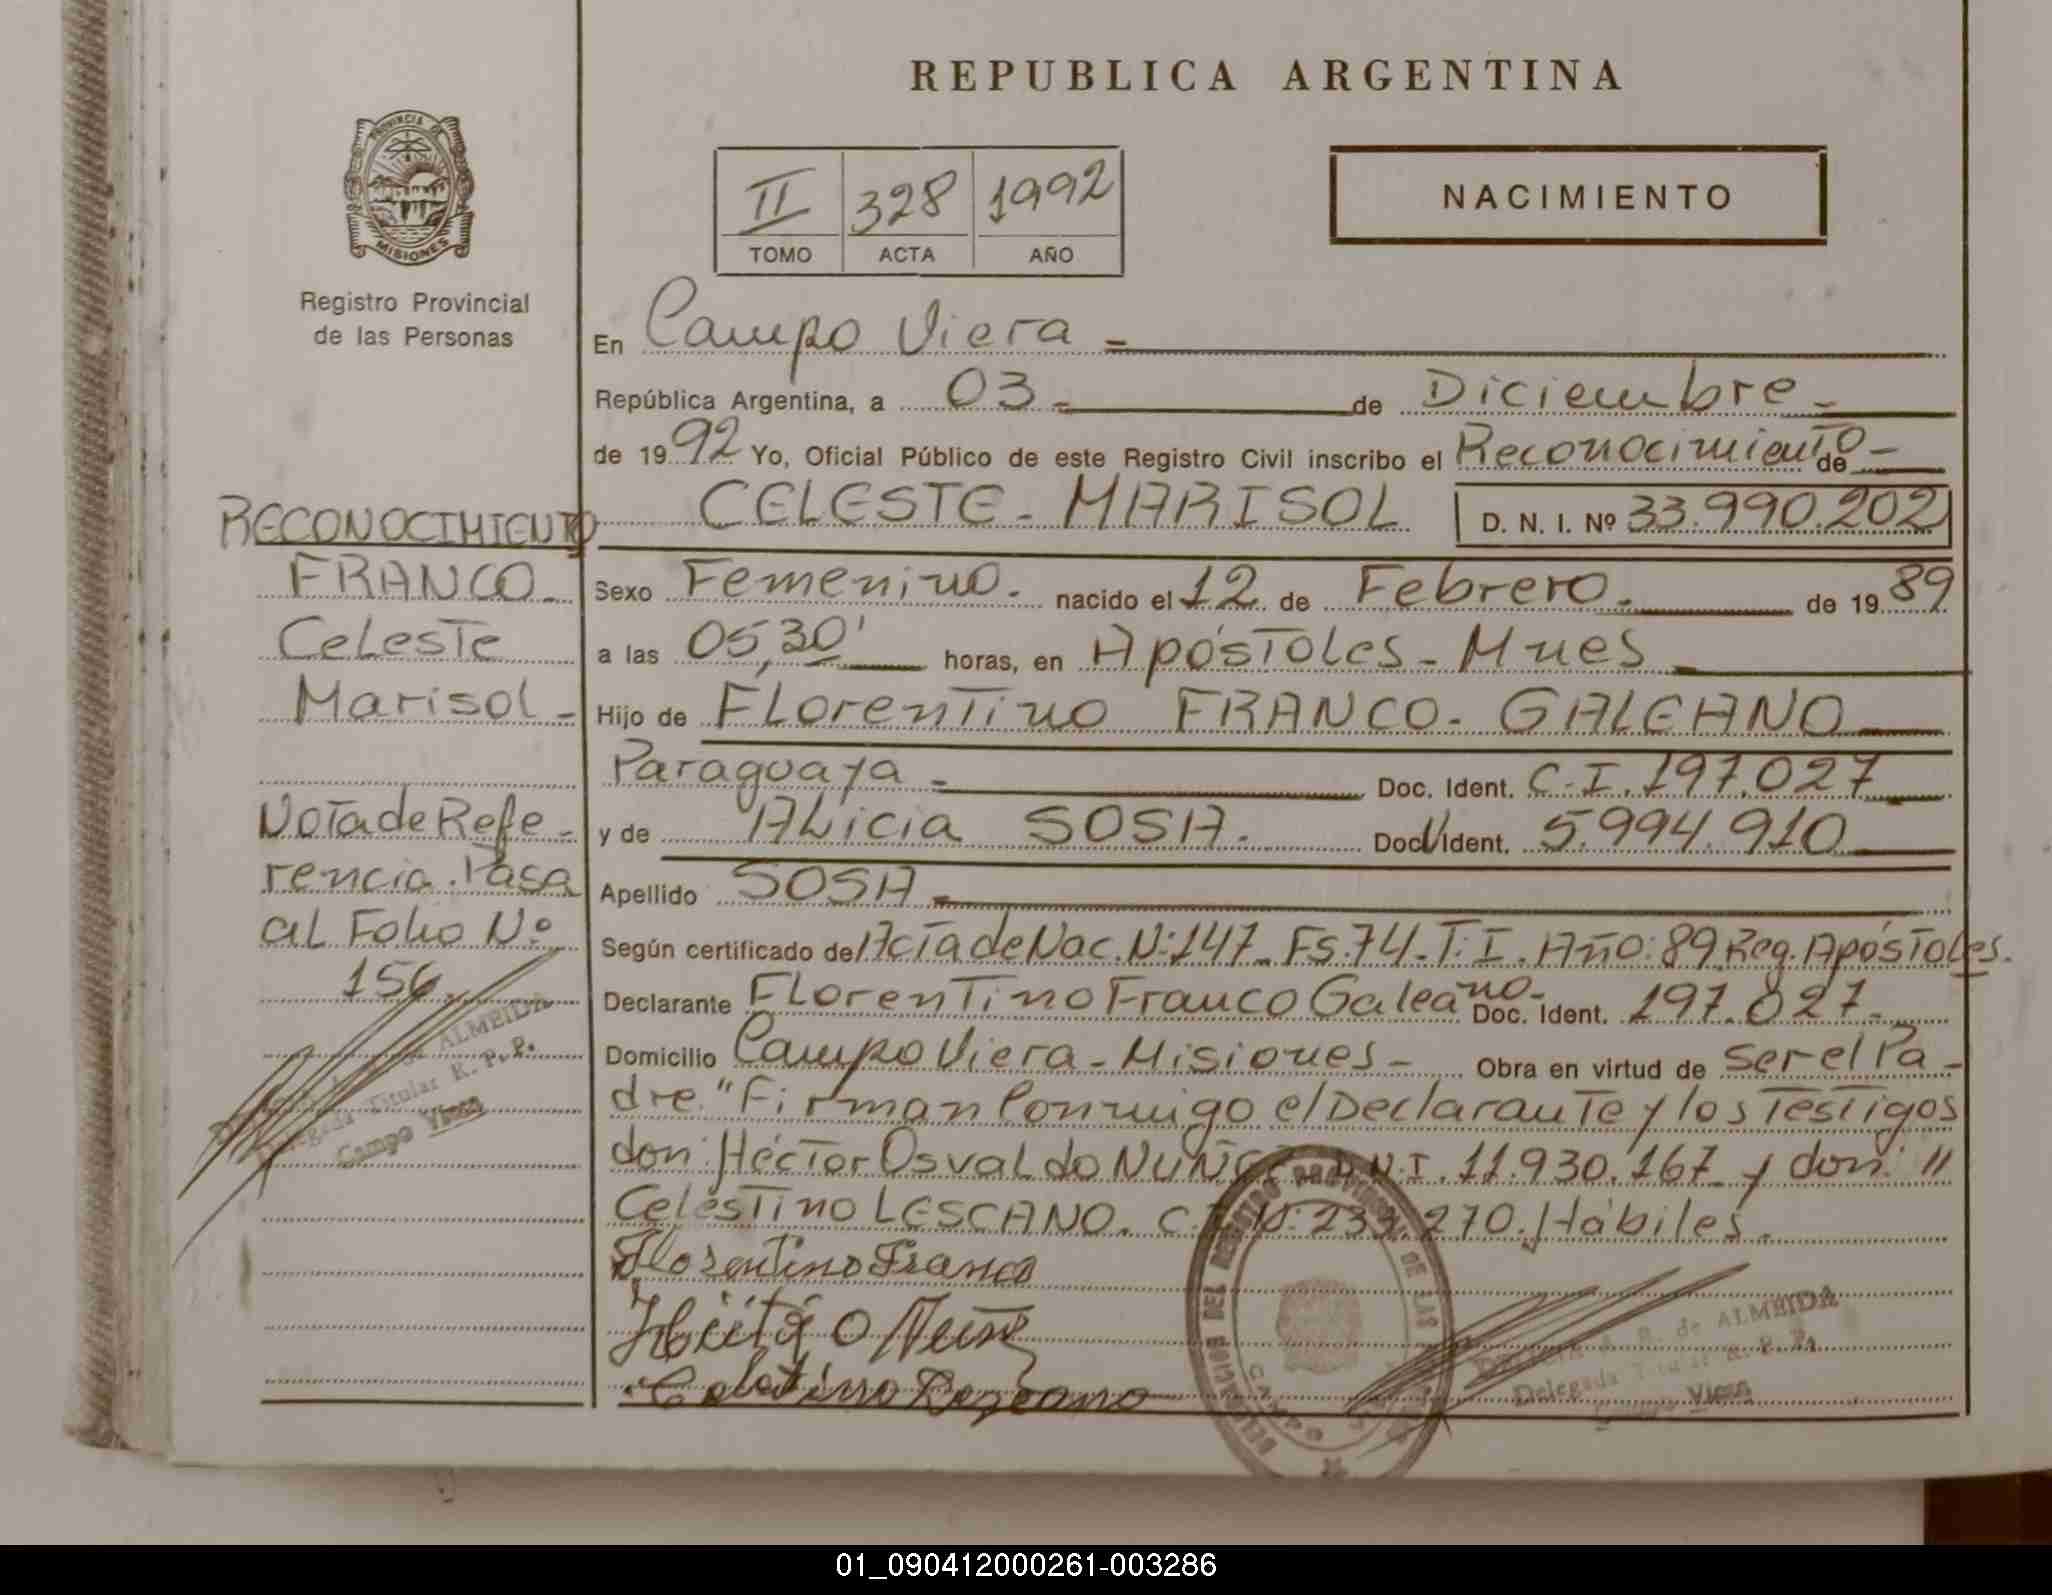 REPUBLICA ARGENTINA
PROVINCIA DE
MISIONES
Registro Provincial
de las Personas
II 328 1992
TOMO ACTA AÑO
NACIMIENTO
En Campo Viera
República Argentina, a 03 de Diciembre
de 1992 Yo, Oficial Público de este Registro Civil inscribo el Reconocimiento de
CELESTE - MARISOL D. N. I. Nº 33.990.202
Sexo Femenino. nacido el 12 de Febrero. de 1989
a las 05,30' horas, en Apóstoles - Mnes
Hijo de Florentino FRANCO - GALEANO
Paraguaya Doc. Ident. C.I. 197.027
y de Alicia SOSA. Doc. Ident. 5.994.910
Apellido SOSA
Según certificado de Acta de Nac. N: 147 - Fs. 74 - T: I. Año: 89 Reg. Apóstoles.
Declarante Florentino Franco Galeano - Doc. Ident. 197.027.
Domicilio Campo Viera - Misiones - Obra en virtud de ser el Pa-
dre." Firman Conmigo el Declarante y los Testigos
don: Héctor Osvaldo NUÑEZ D.N.I. 11.930.167 y don: "
Celestino LESCANO. C.I. N: 270. Hábiles.
Florentino Franco
RECONOCIMIENTO
FRANCO -
Celeste
Marisol -
Nota de Refe-
rencia. Pasa
al Folio Nº
156.
ALMEIDA
Delegada Titular R. P. P.
Campo Viera
DELEGACION DEL REGISTRO PROVINCIAL DE LAS
A. R. de ALMEIDA
Delegada Titular R. P. P.
Viera
01_090412000261-003286